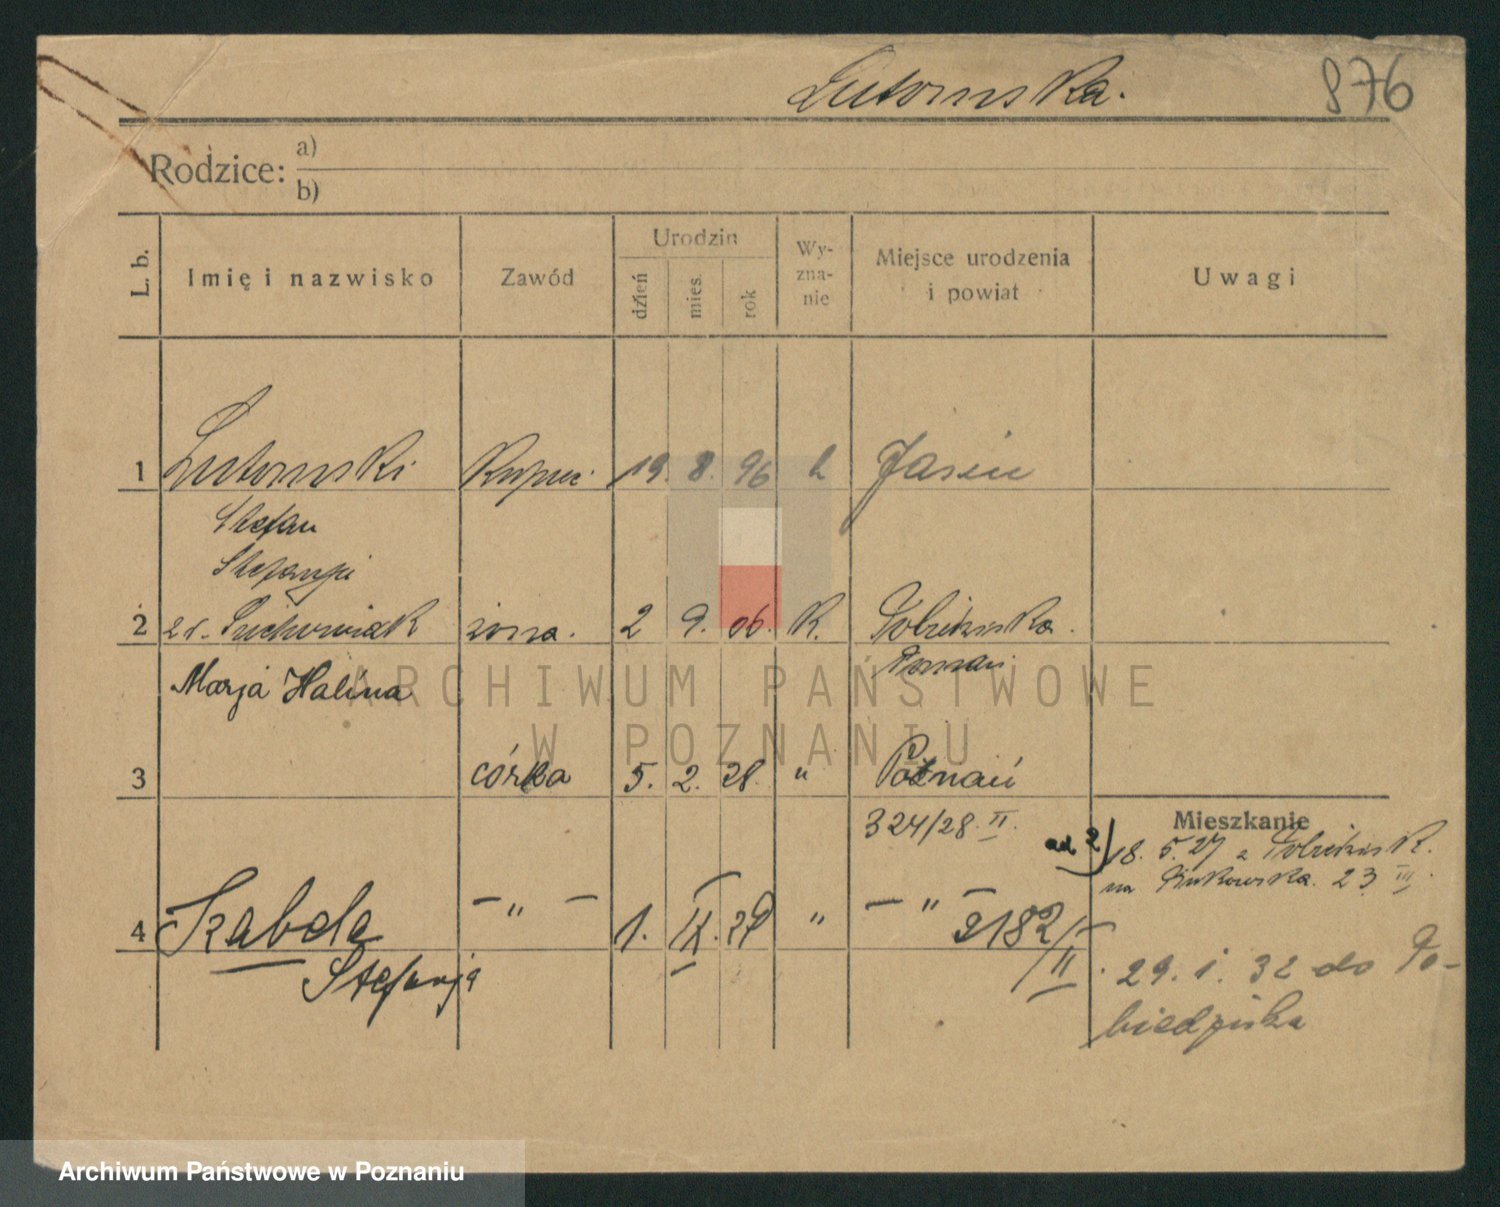 Lutomska. 876
Rodzice: a)
b)
L. b. Imię i nazwisko Zawód Urodzin dzień mies. rok Wy-zna-nie Miejsce urodzenia i powiat Uwagi
1 Lutomski Kupiec 19. 8. 96 k Jasin
Stefan
Stefanja
2 zd. Suchowiak żona. 2 9. 06. K.
Poznań
Marja Halina
ARCHIWUM PAŃSTWOWE
W POZNANIU
3 córka 5. 2. 28. " Poznań
324/28 II.
Mieszkanie
ad 2) 18. 5. 27 z
na Bukowska. 23 III.
4 Izabela — " — 1. IX. 29 " — " — 3182/II
Stefanja
29. 1. 32 do Po-
biedziska
Archiwum Państwowe w Poznaniu